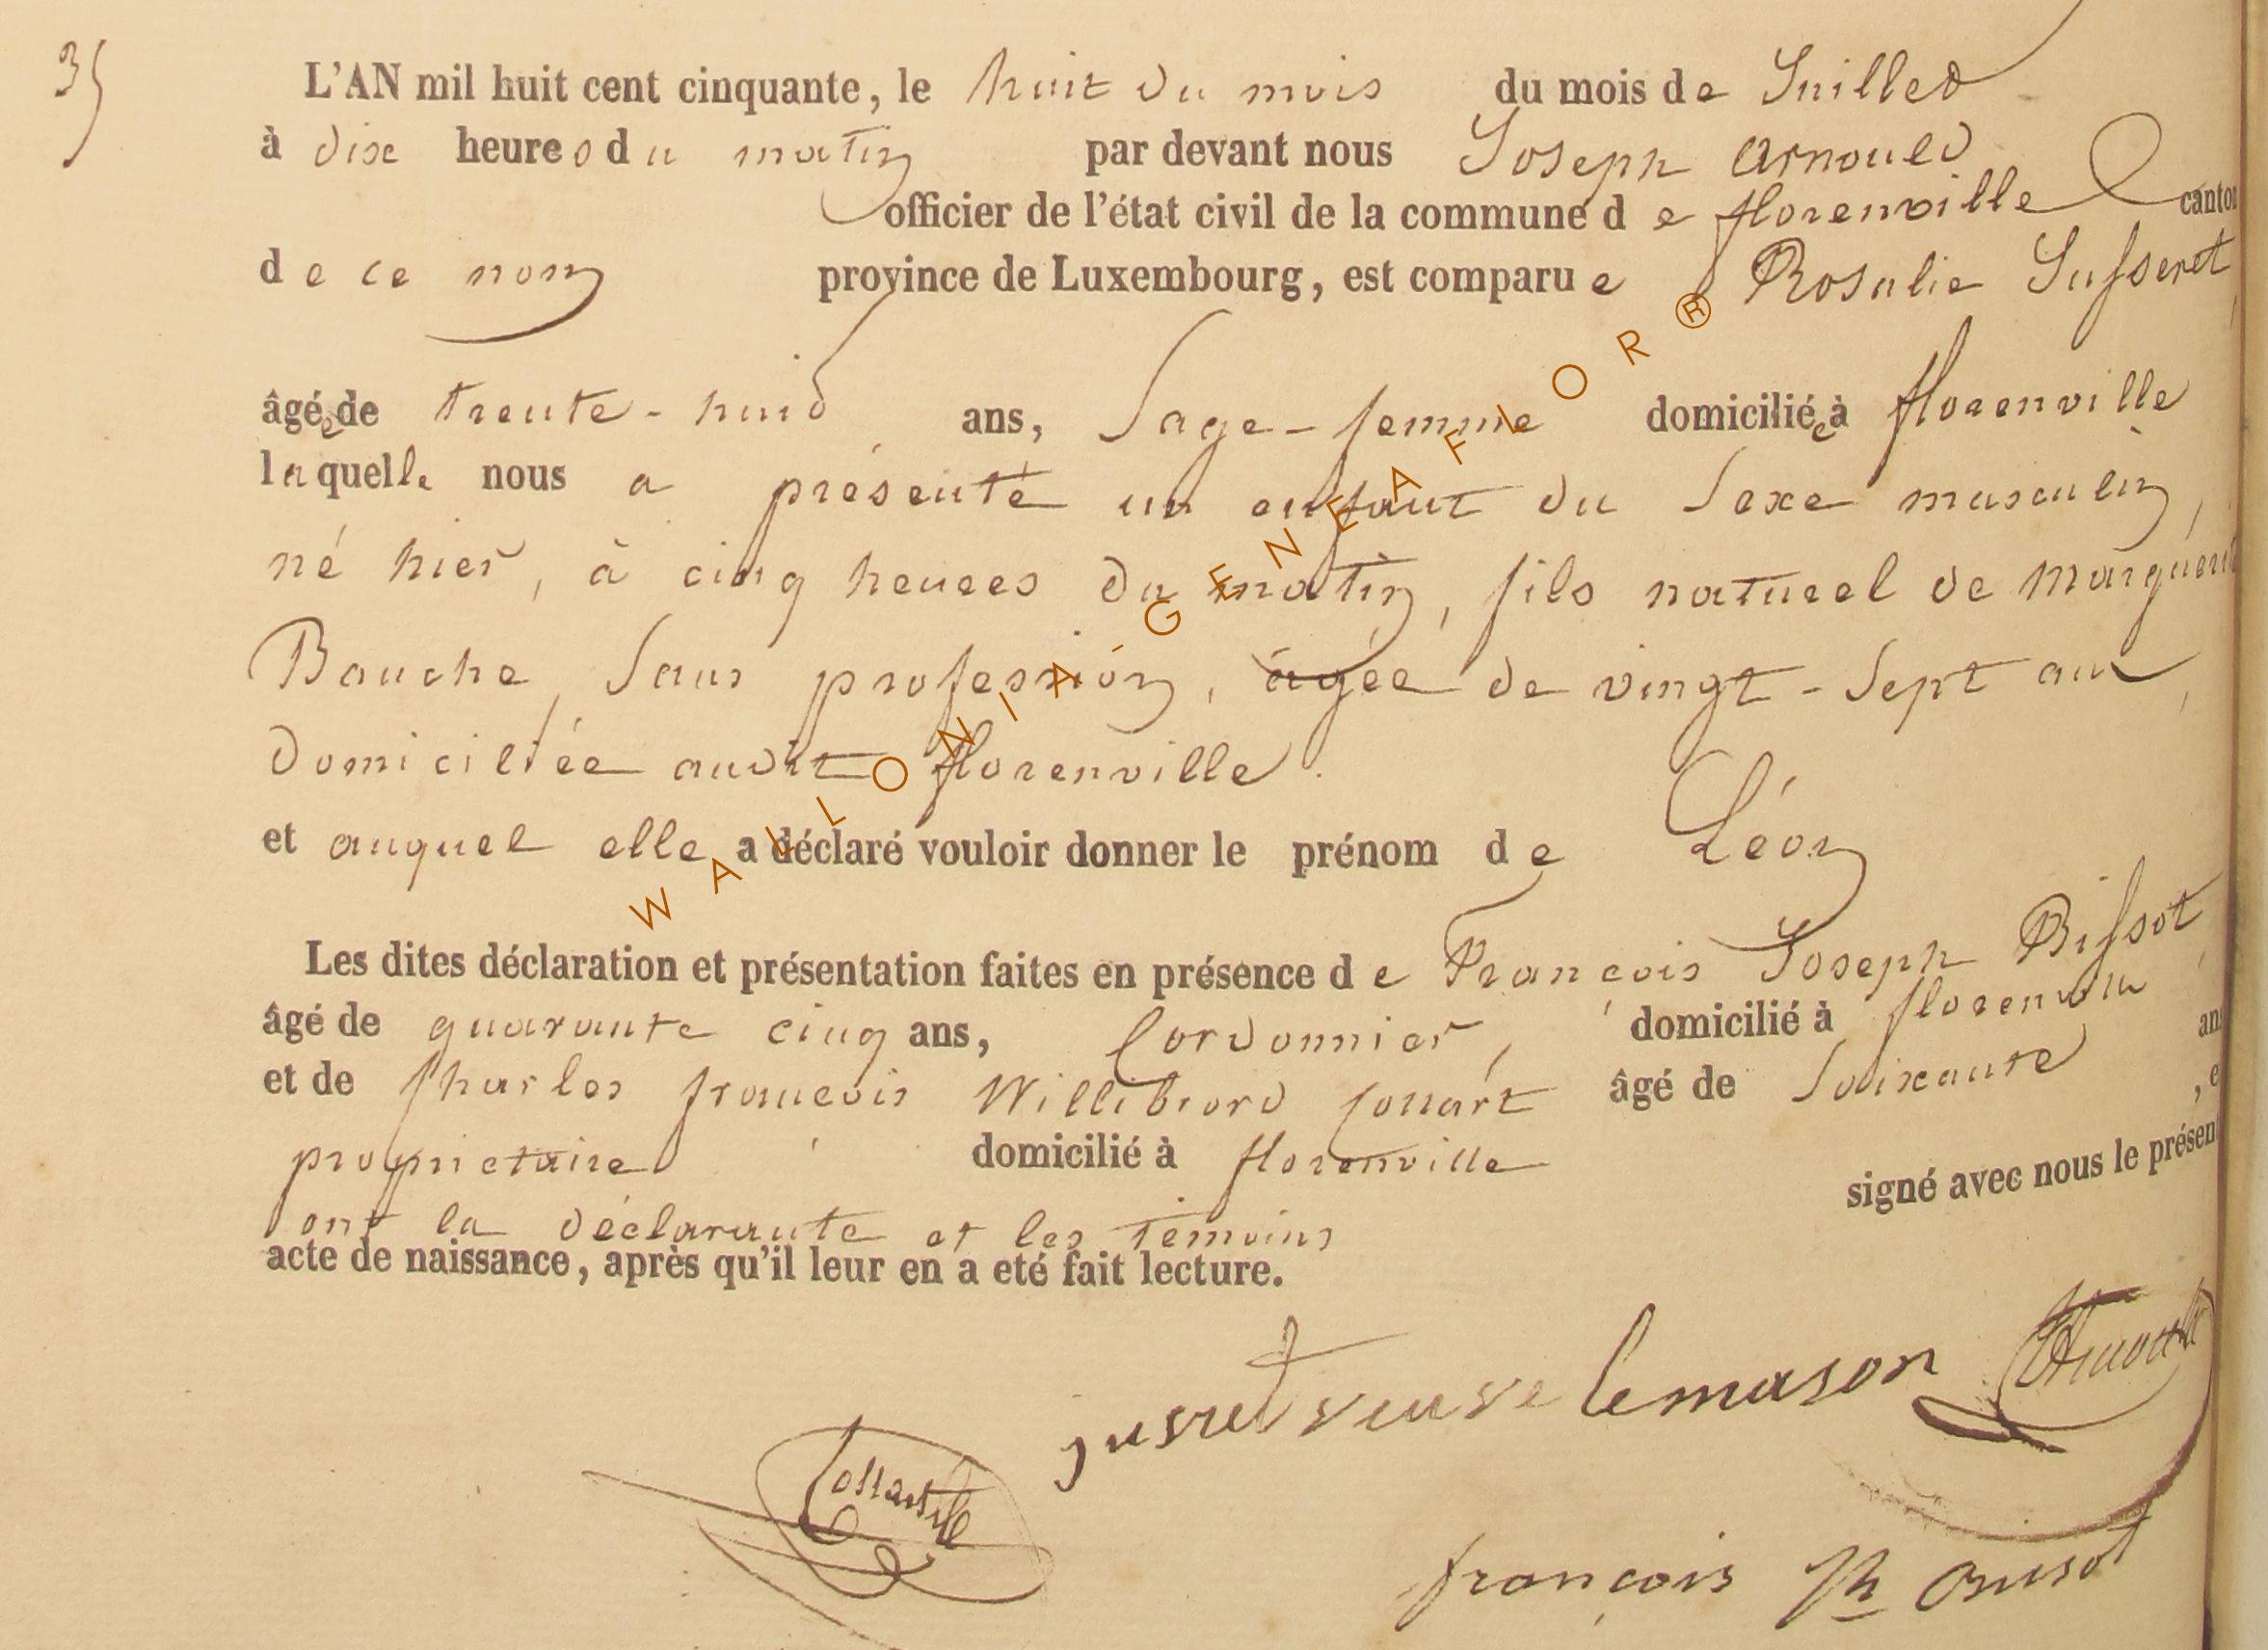 35
L'AN mil huit cent cinquante, le huit du mois du mois de Juillet
à dix heures du matin par devant nous Joseph Arnould
officier de l'état civil de la commune de florenville canton
de ce nom province de Luxembourg, est comparue Rosalie Jusseret,
âgée de trente-huit ans, Sage-femme domiciliée à florenville
laquelle nous a présenté un enfant du Sexe masculin,
né hier, à cinq heures du matin, fils naturel de
Bauche, Sans profession, âgée de vingt-Sept ans,
domiciliée audit florenville.
et auquel elle a déclaré vouloir donner le prénom de Léon
Les dites déclaration et présentation faites en présence de François Joseph Bissot,
âgé de quarante cinq ans, Cordonnier, domicilié à florenville
et de Charles françois Willibrord Collart âgé de Soixante ans
propriétaire domicilié à florenville , e
ont la déclarante et les témoins signé avec nous le présen
acte de naissance, après qu'il leur en a eté fait lecture.
jusret veuve lemason
Collart
françois
WALLONIA GENEAFLOR®